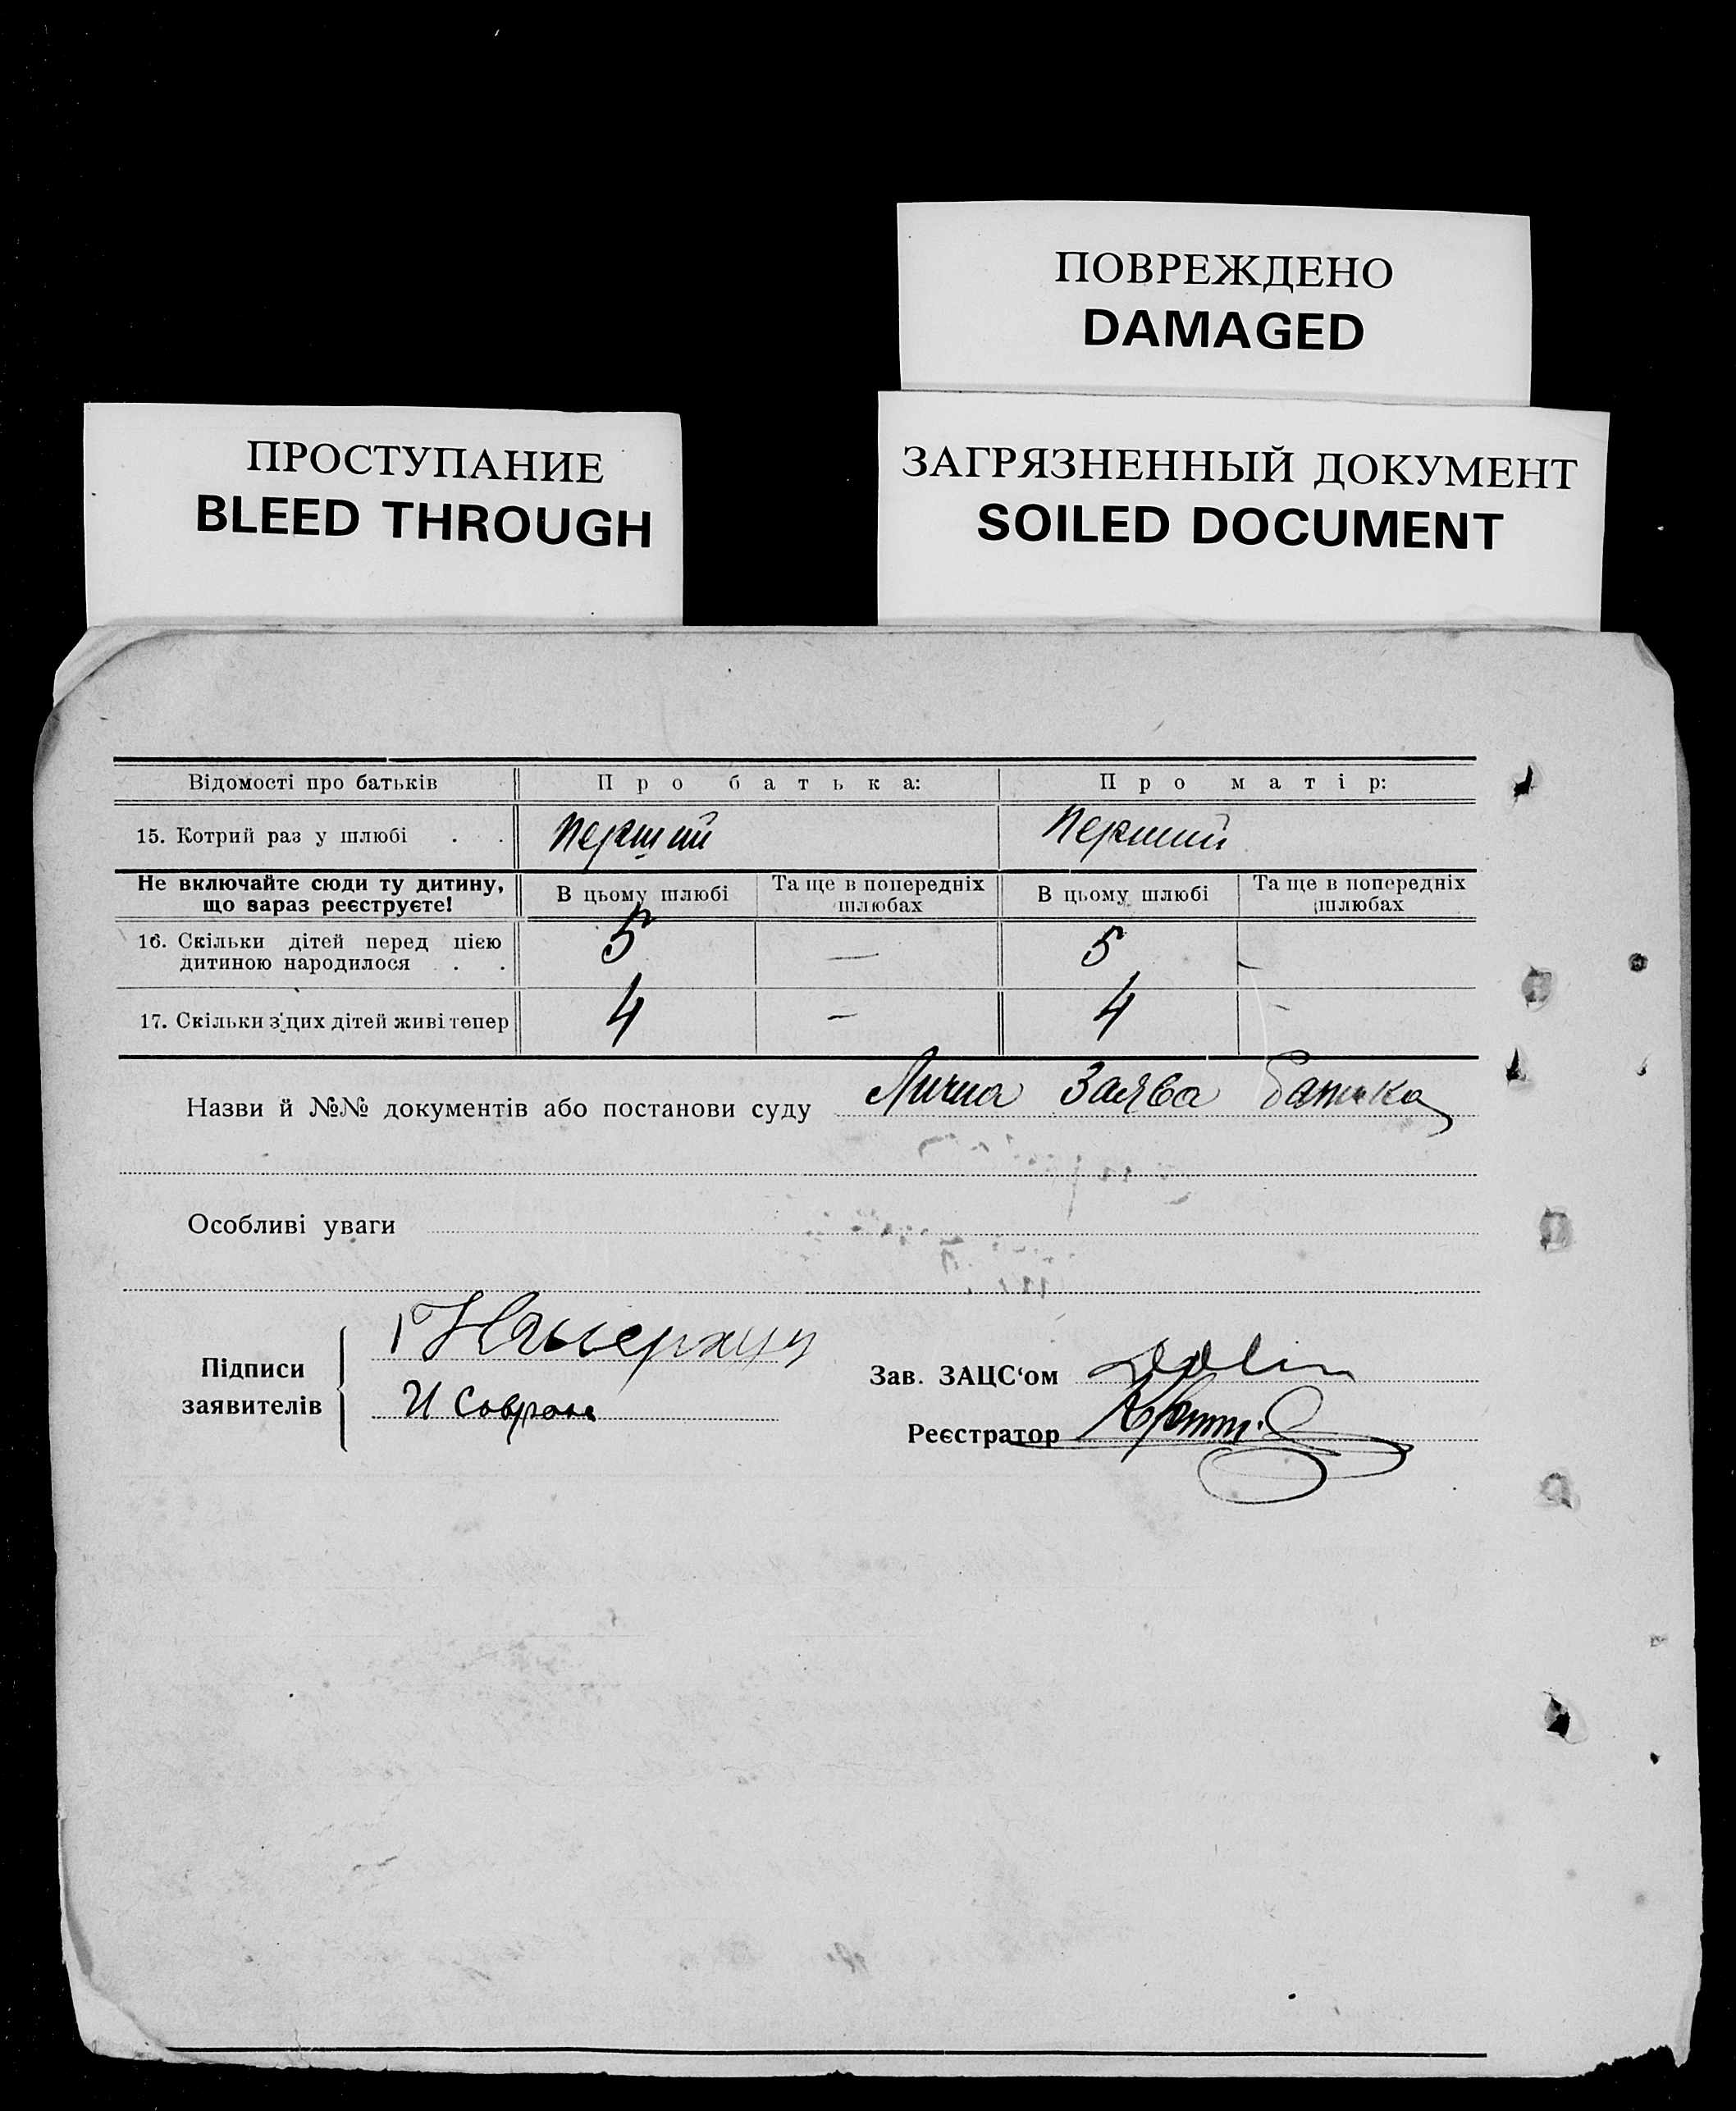 ПОВРЕЖДЕНО
DAMAGED
ПРОСТУПАНИЕ
BLEED THROUGH
ЗАГРЯЗНЕННЫЙ ДОКУМЕНТ
SOILED DOCUMENT
Відомості про батьків Про батька: Про матір:
15. Котрий раз у шлюбі . . Перший Перший
Не включайте сюди ту дитину, що зараз реєструєте! В цьому шлюбі Та ще в попередніх шлюбах В цьому шлюбі Та ще в попередніх шлюбах
16. Скільки дітей перед цією дитиною народилося . . 5 — 5 -
17. Скільки з цих дітей живі тепер 4 — 4 -
Назви й №№ документів або постанови суду Лична Заява батька
Особливі уваги
Підписи заявителів
И
Зав. ЗАЦС‘ом
Реєстратор